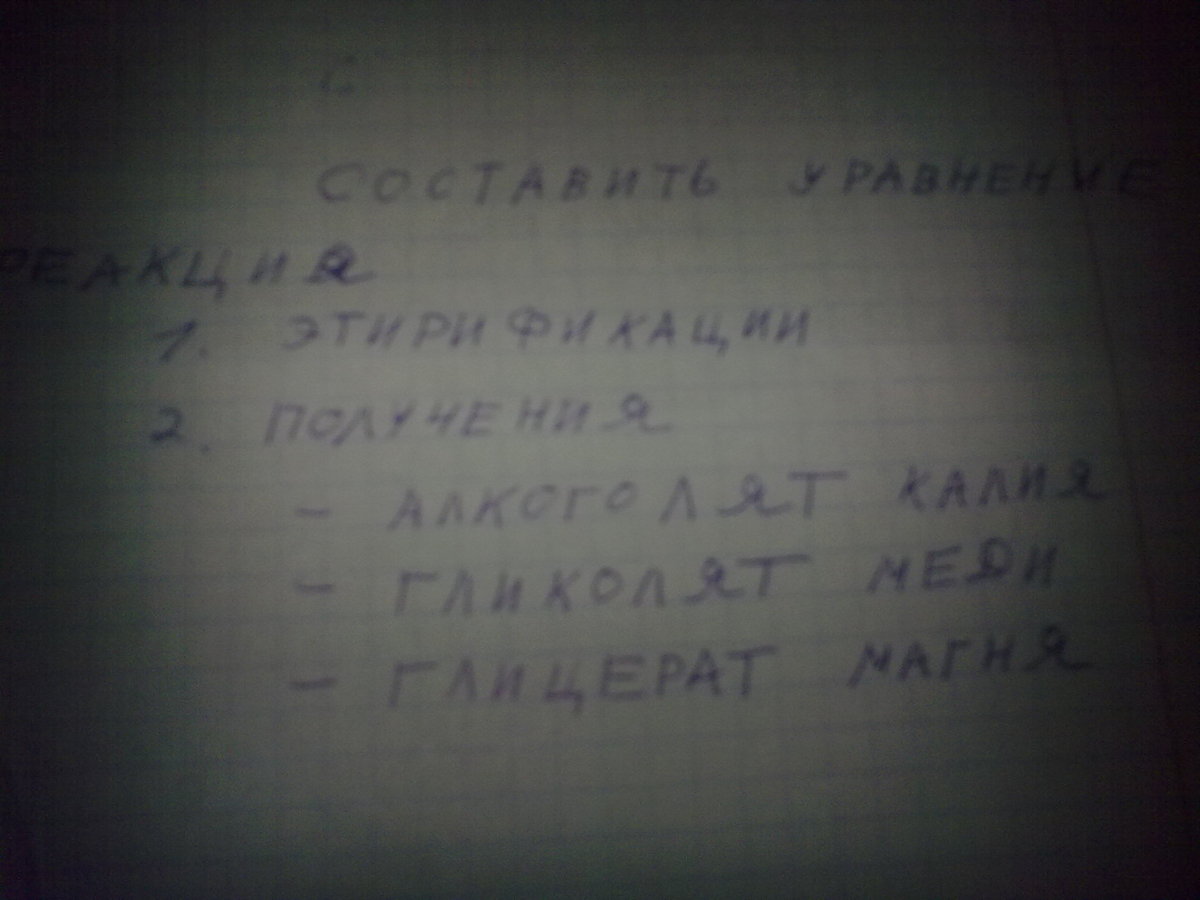 СОСТАВИТЬ УРАВНЕНИЕ
РЕАКЦИЯ
1. ЭТИРИФИКАЦИИ
2. ПОЛУЧЕНИЯ
- АЛКОГОЛЯТ КАЛИЯ
- ГЛИКОЛЯТ МЕДИ
- ГЛИЦЕРАТ МАГНЯ